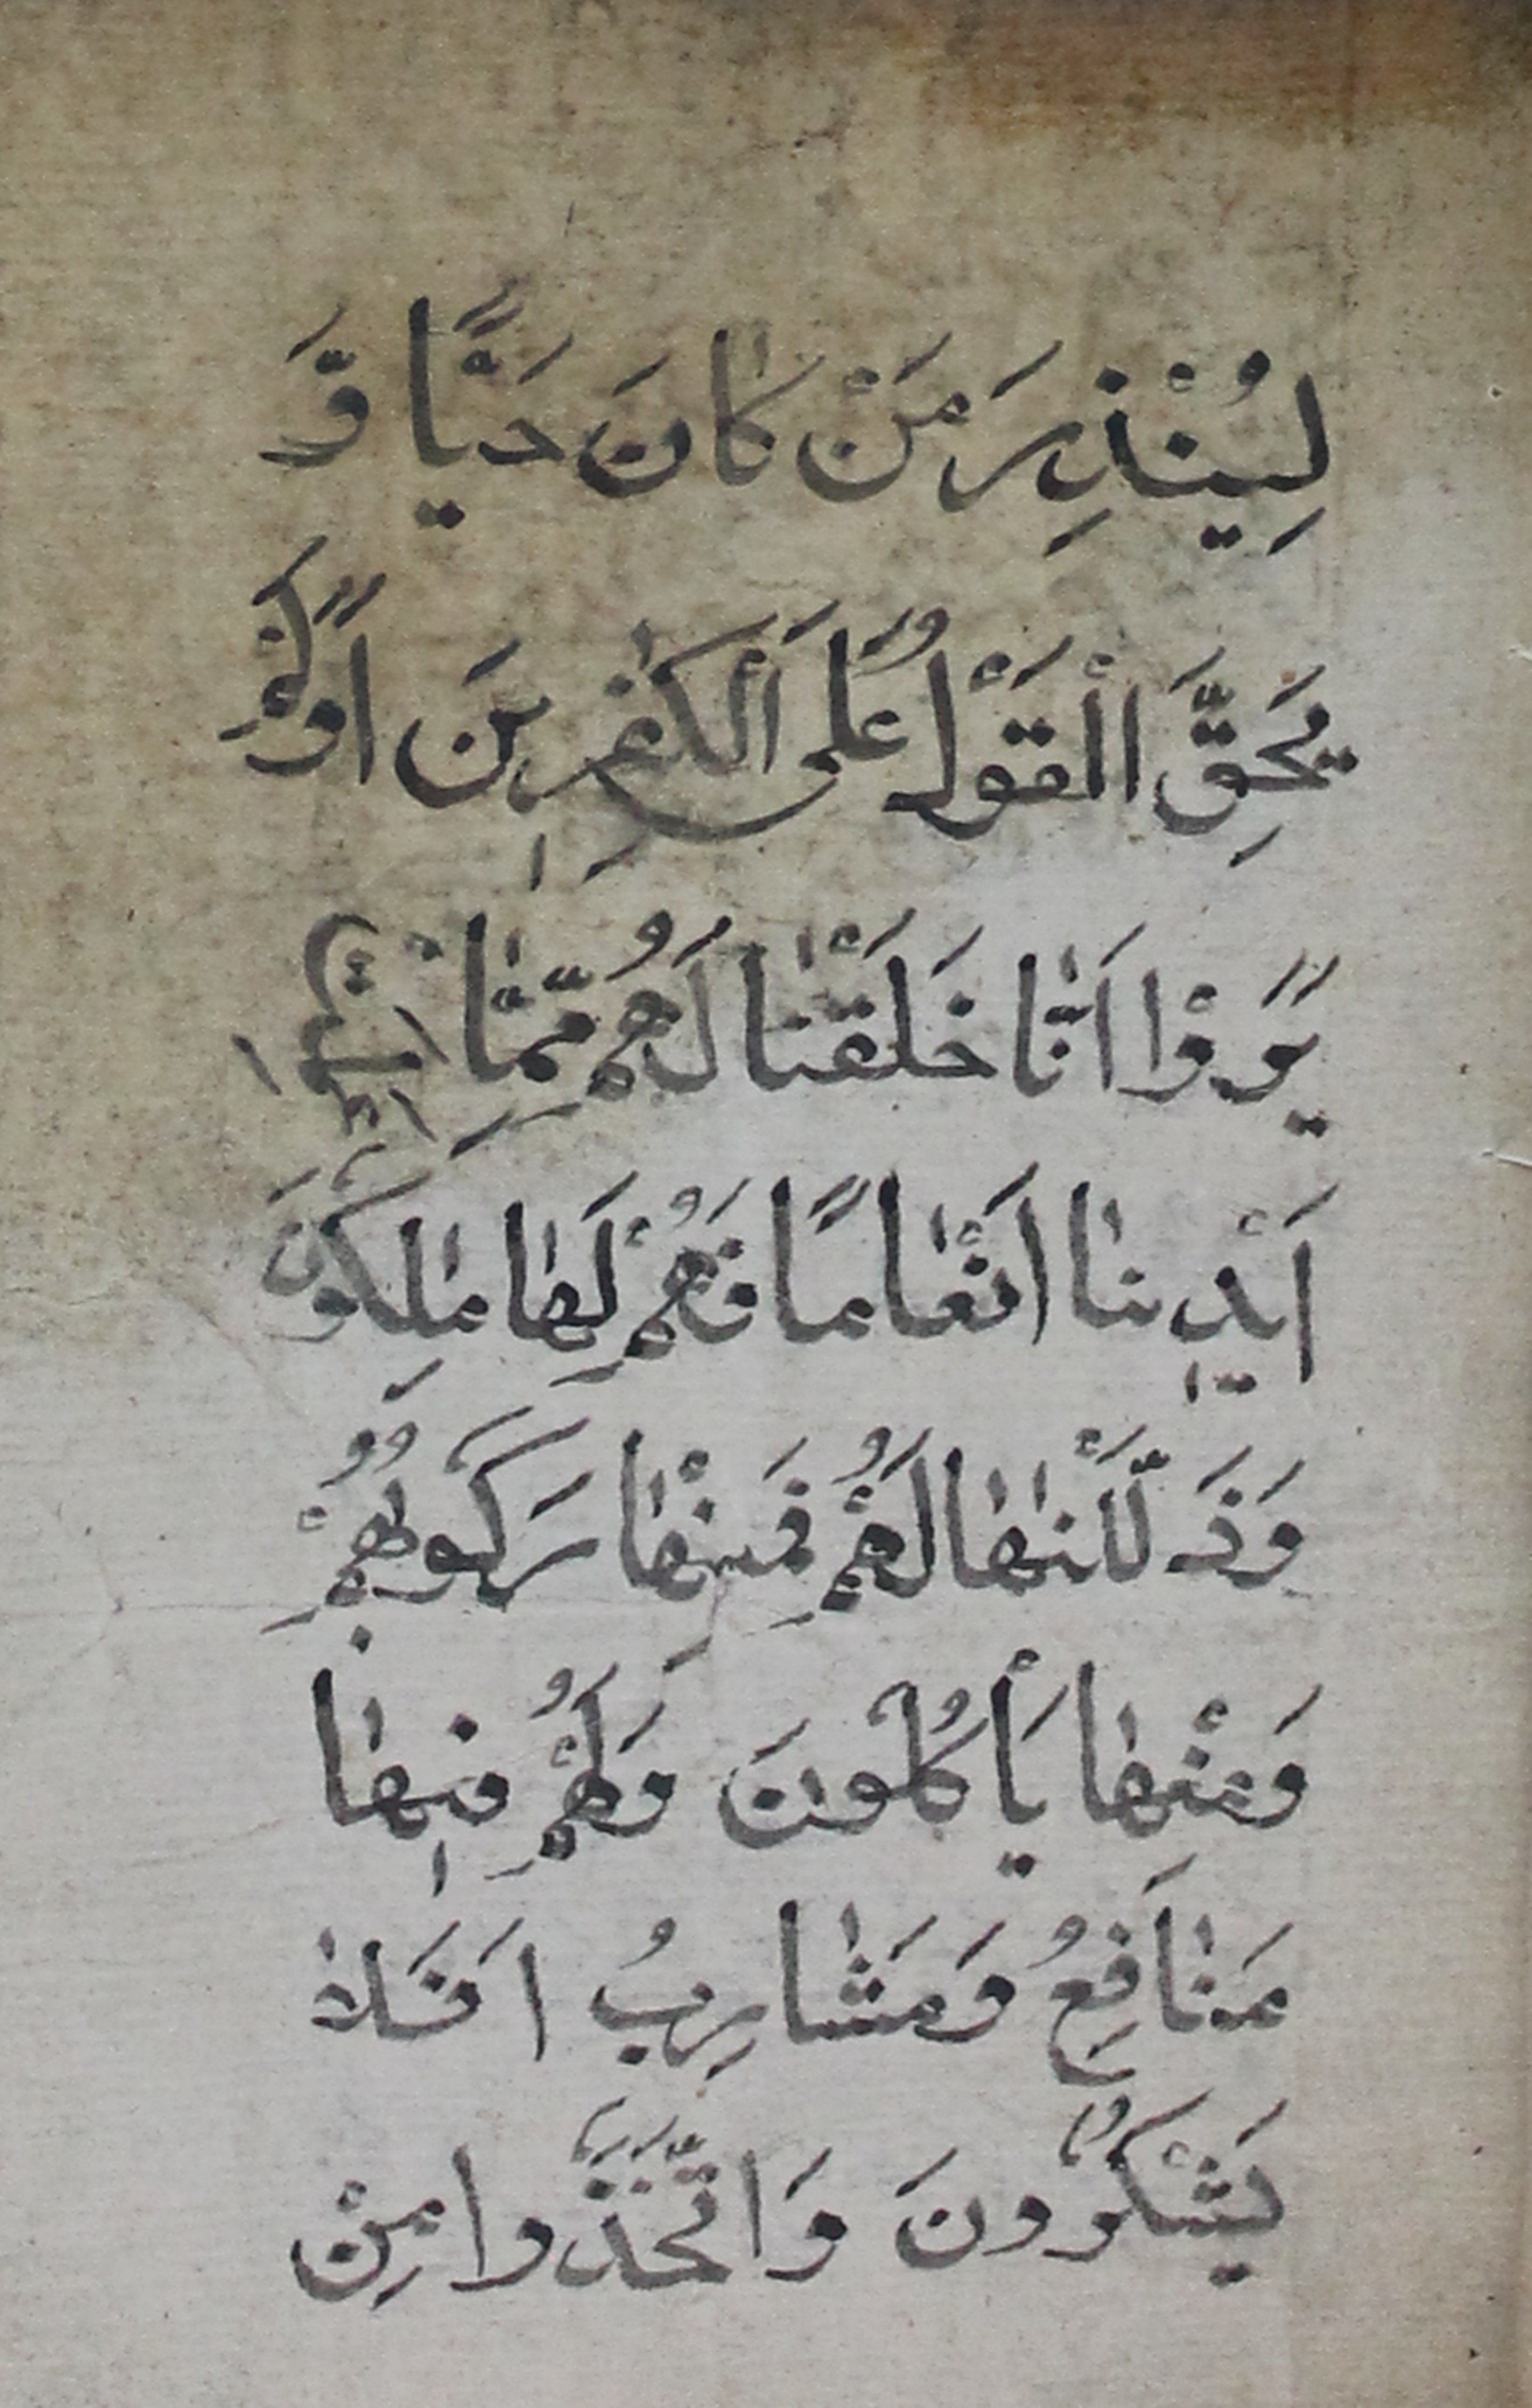 لِيُنْذِرَ مَنْ كَانَ حَيًّا وَّ
يَحِقَّ الْقَوْلُ عَلَى الْكٰفِرِيْنَ اَوَلَمْ
يَرَوْا اَنَّا خَلَقْنٰا لَهُمْ مِّمّٰا
اَيْدِينٰا اَنْعٰامًا فَهُمْ لَهٰا مٰلِكُوْنَ
وَذَلَّلْنٰهٰا لَهُمْ فَمِنْهٰا رَكُوبُهُمْ
وَمِنْهٰا يَأْكُلُوْنَ وَلَهُمْ فِيهٰا
مَنٰافِعُ وَمَشٰارِبُ اَفَلاٰ
يَشْكُرُونَ وَاتَّخَذُوا مِنْ